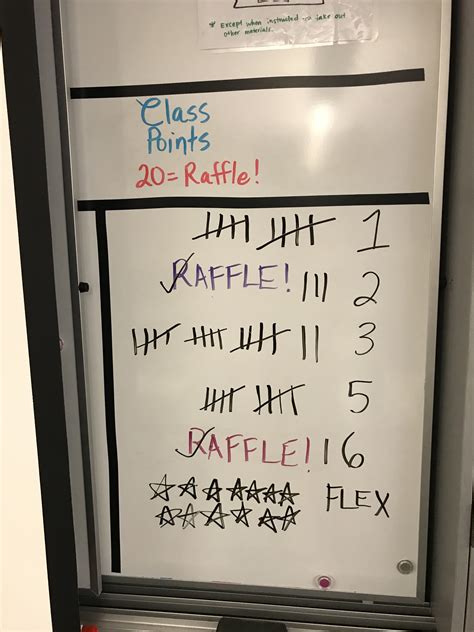 * Except when instructed to take out
other materials.
Class
Points
20 = Raffle!
卌 卌 1
RAFFLE! ||| 2
卌 卌 卌 || 3
卌 卌 5
RAFFLE! | 6
FLEX